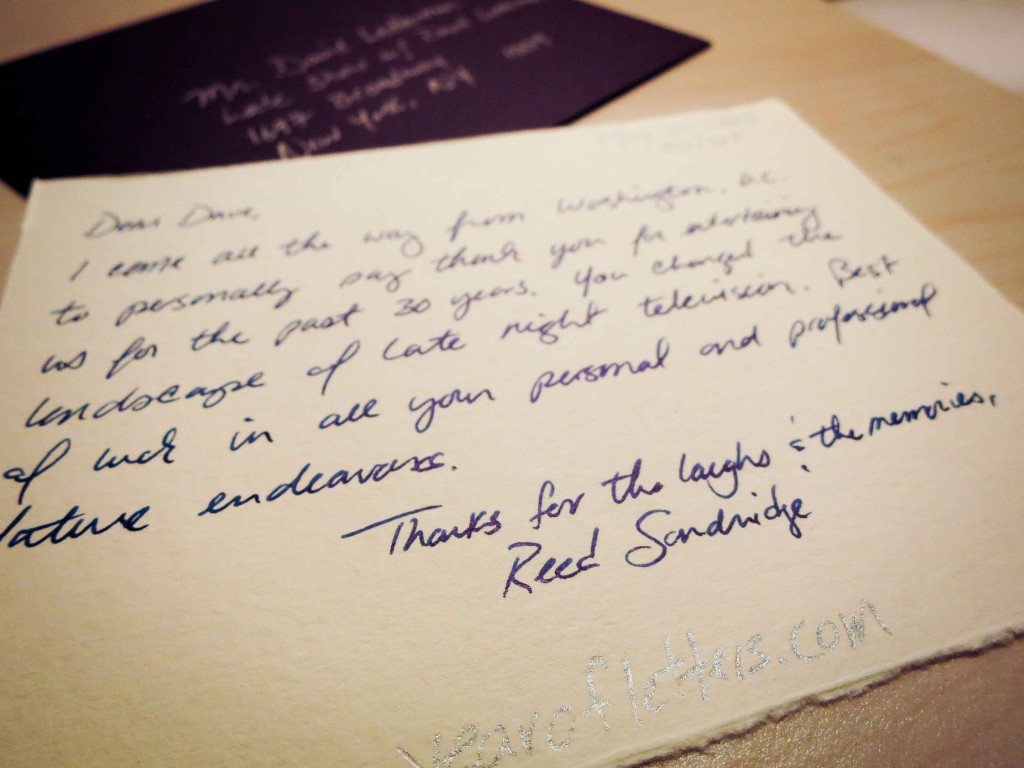 Mr. David Letterman
Late Show w/ David Letterman
1697 Broadway
New York, NY 10019
Dear Dave,
I came all the way from Washington, D.C.
to personally say thank you for entertaining
us for the past 30 years. You changed the
landscape of late night television. Best
of luck in all your personal and professional
future endeavors.
Thanks for the laughs & the memories,
Reed Sandridge
yearofletters.com